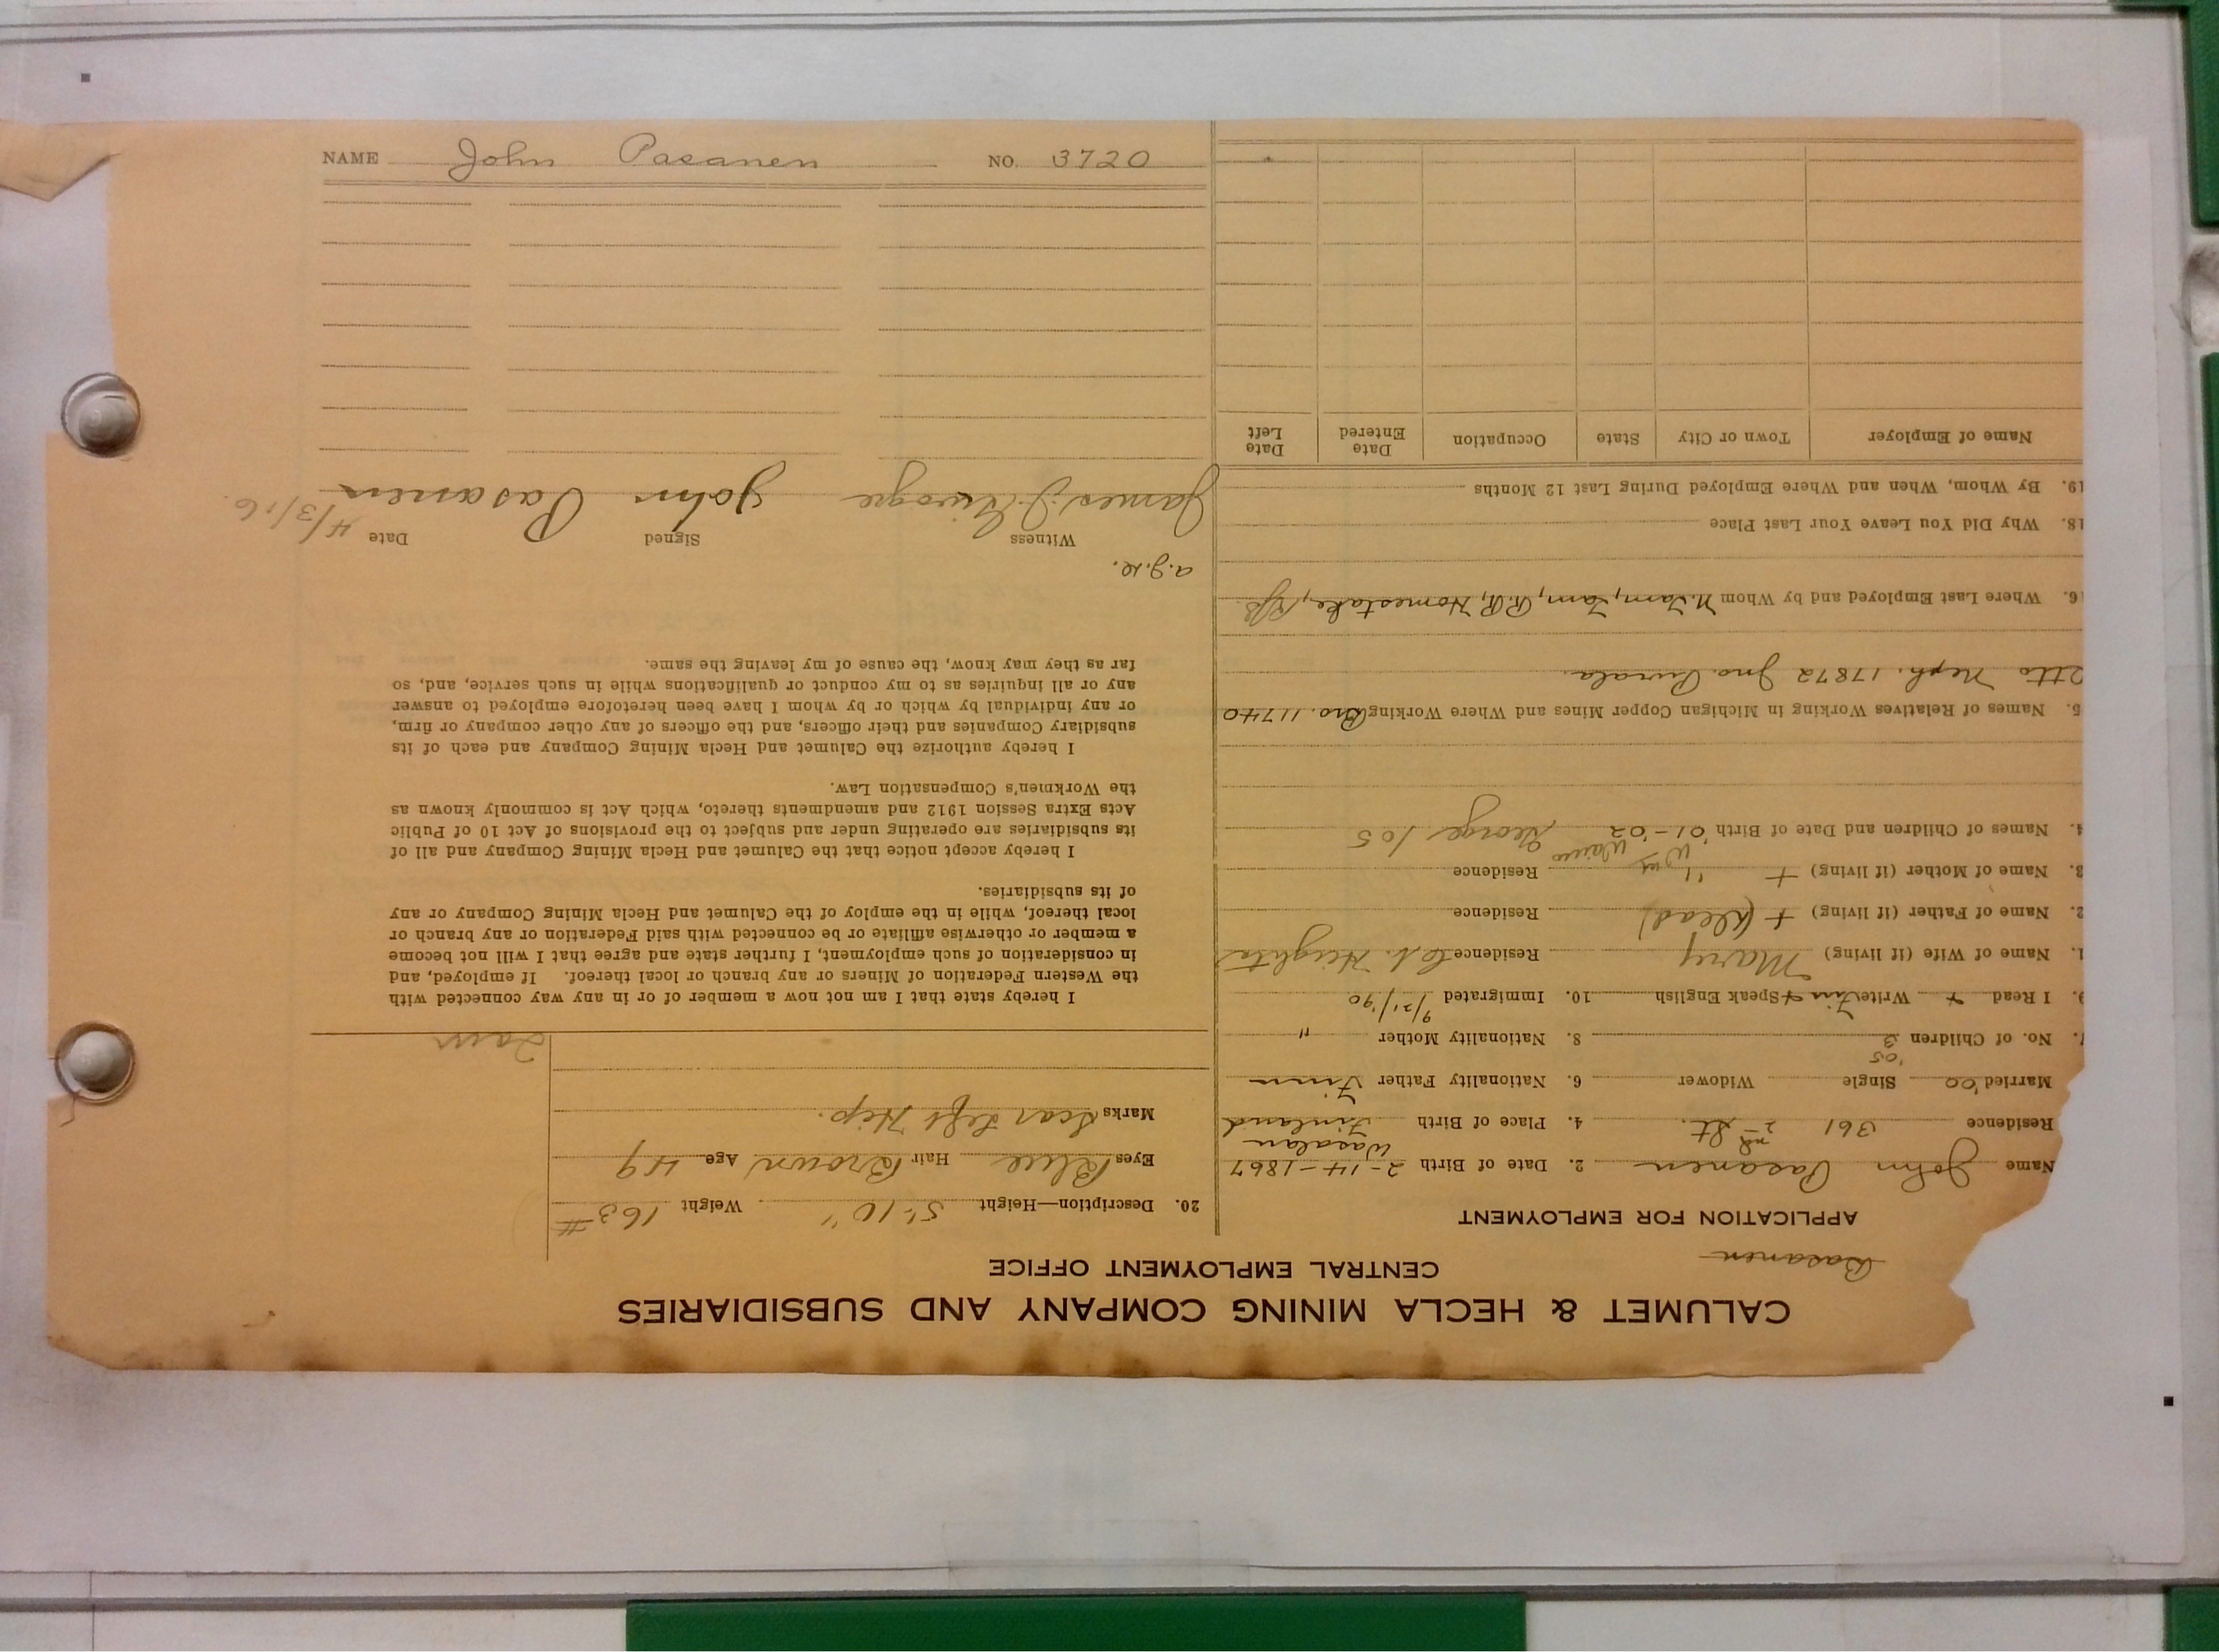 NAME John Pasanen NO. 3720
CALUMET & HECLA MINING COMPANY AND SUBSIDIARIES
CENTRAL EMPLOYMENT OFFICE
Basanen
APPLICATION FOR EMPLOYMENT
Name John Pasanen 2. Date of Birth 2-14-1867
Wasalan
Residence 361 2nd St. 4. Place of Birth Finland
Married '00 Single Widower 6. Nationality Father Finn
'05
No. of Children 3 8. Nationality Mother "
9. I Read + Write Finn + Speak English 10. Immigrated 9/21/90
1. Name of Wife (if living) Mary Residence Col. Heights
2. Name of Father (if living) + (dead) Residence
3. Name of Mother (if living) + " Residence
Wm Waino
4. Names of Children and Date of Birth '01-'02 George / 05
5. Names of Relatives Working in Michigan Copper Mines and Where Working Bro. 11740
Otto Neph. 17872 Jno.
16. Where Last Employed and by Whom N. Tam, Tam, R.R, Homestake,
18. Why Did You Leave Your Last Place
19. By Whom, When and Where Employed During Last 12 Months
Name of Employer Town or City State Occupation Date Entered Date Left
20. Description—Height 5'-10" Weight 163#
Eyes Blue Hair Brown Age 49
Marks Scar Left Hip.
Tam
I hereby state that I am not now a member of or in any way connected with
the Western Federation of Miners or any branch or local thereof. If employed, and
in consideration of such employment, I further state and agree that I will not become
a member or otherwise affiliate or be connected with said Federation or any branch or
local thereof, while in the employ of the Calumet and Hecla Mining Company or any
of its subsidiaries.
I hereby accept notice that the Calumet and Hecla Mining Company and all of
its subsidiaries are operating under and subject to the provisions of Act 10 of Public
Acts Extra Session 1912 and amendments thereto, which Act is commonly known as
the Workmen's Compensation Law.
I hereby authorize the Calumet and Hecla Mining Company and each of its
subsidiary Companies and their officers, and the officers of any other company or firm,
or any individual by which or by whom I have been heretofore employed to answer
any or all inquiries as to my conduct or qualifications while in such service, and, so
far as they may know, the cause of my leaving the same.
a.g.k.
Witness Signed Date 4/3/16.
James J. John Pasanen